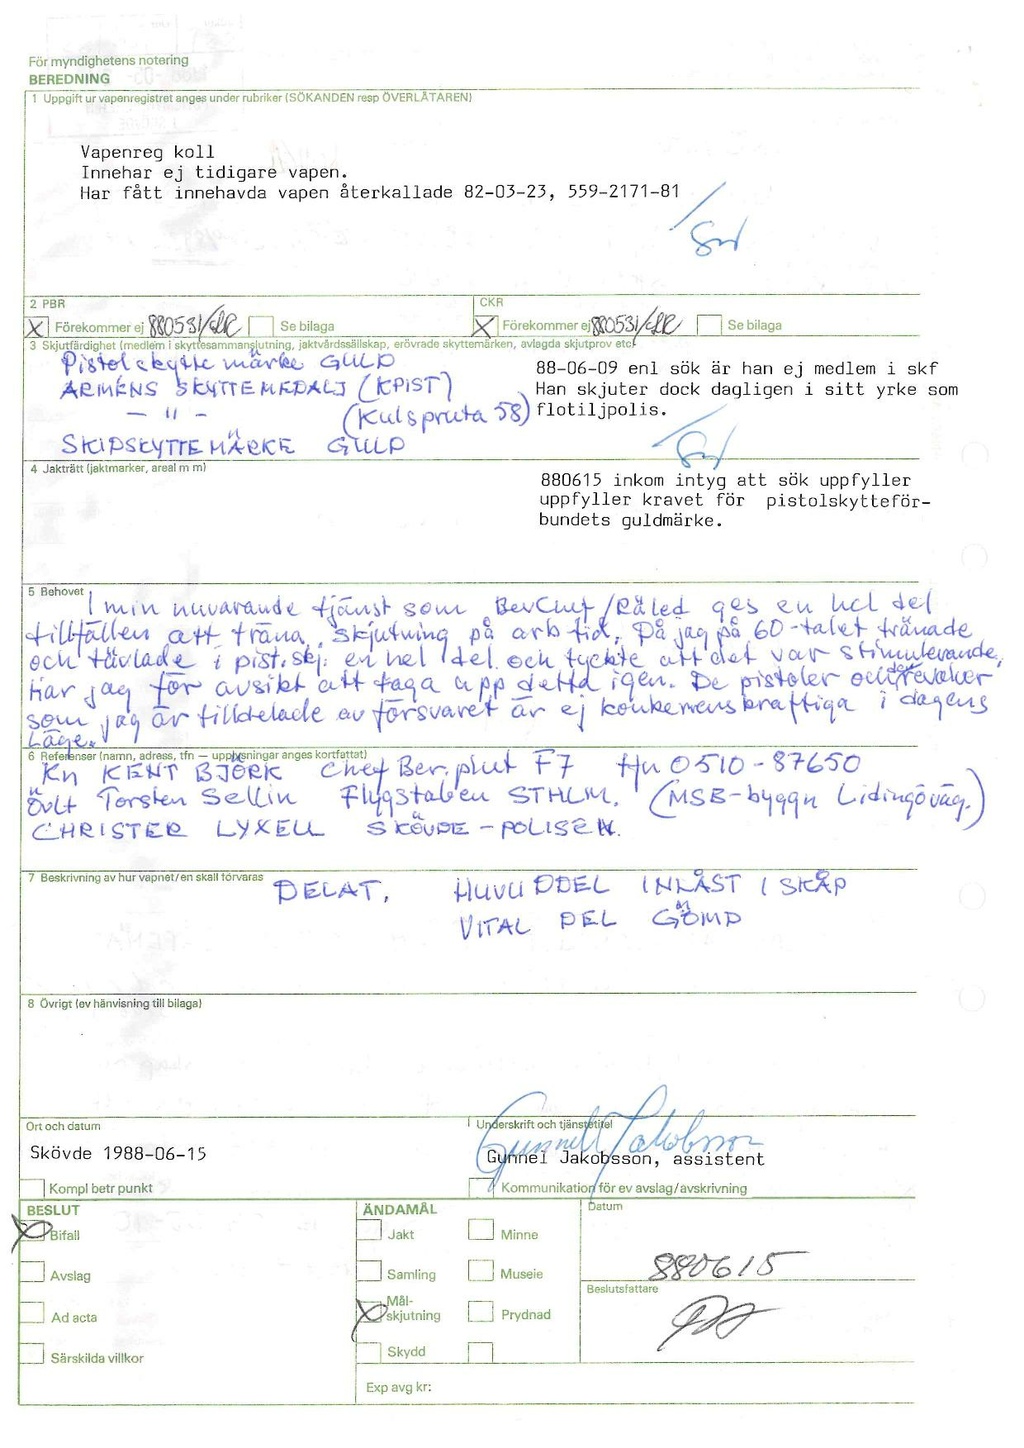 För myndighetens notering
BEREDNING
1 Uppgift ur vapenregistret anges under rubriker (SÖKANDEN resp ÖVERLÅTAREN)
Vapenreg koll
Innehar ej tidigare vapen.
Har fått innehavda vapen återkallade 82-03-23, 559-2171-81
2 PBR
CKR
X Förekommer ej 880531/
Se bilaga
X Förekommer ej 880531/
Se bilaga
3 Skjutfärdighet (medlem i skyttesammanslutning, jaktvårdssällskap, erövrade skyttemärken, avlagda skjutprov etc)
Pistolskytte märke GULD
ARMÉNS SKYTTEMEDALJ (KPIST)
— " — (Kulspruta 58)
SKIDSKYTTEMÄRKE GULD
88-06-09 enl sök är han ej medlem i skf
Han skjuter dock dagligen i sitt yrke som
flotiljpolis.
4 Jakträtt (jaktmarker, areal m m)
880615 inkom intyg att sök uppfyller
uppfyller kravet för pistolskytteför-
bundets guldmärke.
5 Behovet
I min nuvarande tjänst som BevChef/Räled ges en hel del
tillfällen att träna skjutning på arb tid. Då jag på 60-talet tränade
och tävlade i pist.skj. en hel del och tyckte att det var stimulerande,
har jag för avsikt att taga upp detta igen. De pistoler och den revolver
som jag är tilldelade av försvaret är ej konkurrenskraftiga i dagens
läge.
6 Referenser (namn, adress, tfn — upplysningar anges kortfattat)
Kn KENT BJÖRK Chef Ber.plut F7 tfn 0510-87650
Övlt Torsten Sellin Flygstaben STHLM. (MSB-byggn Lidingöväg.)
CHRISTER LYXELL SKÖVDE-POLISEN.
7 Beskrivning av hur vapnet/en skall förvaras
DELAT, HUVUDDEL INLÅST I SKÅP
VITAL DEL GÖMD
8 Övrigt (ev hänvisning till bilaga)
Ort och datum
Underskrift och tjänstetitel
Gunnel Jakobsson
Skövde 1988-06-15
Gunnel Jakobsson, assistent
Kompl betr punkt
Kommunikation för ev avslag/avskrivning
BESLUT
ÄNDAMÅL
Datum
X Bifall
Jakt
Minne
880615
Avslag
Samling
Museie
Beslutsfattare
Ad acta
X Mål-
skjutning
Prydnad
Särskilda villkor
Skydd
Exp avg kr: